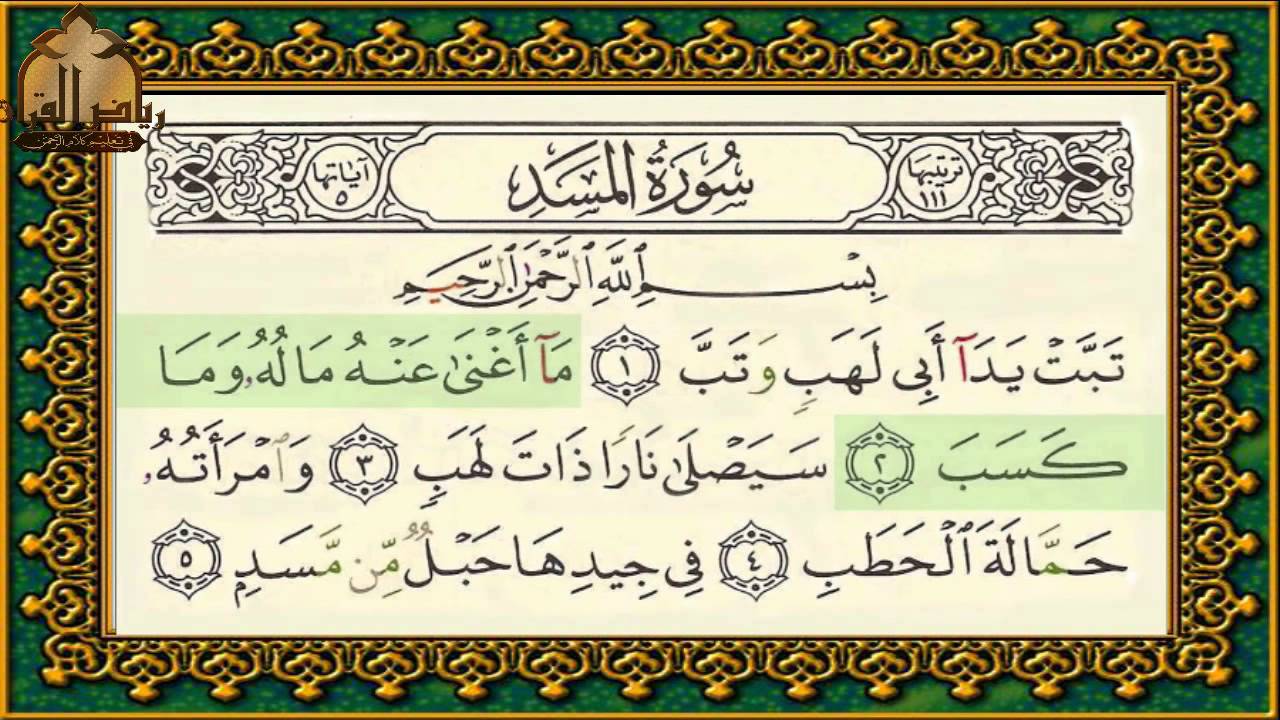 رياض القرآن
في تعليم كلام الرحمن
ترتيبها ١١١
سُورَةُ المَسَدِ
آياتها ٥
بِسْمِ ٱللَّهِ ٱلرَّحْمَٰنِ ٱلرَّحِيمِ
تَبَّتْ يَدَآ أَبِي لَهَبٍ وَتَبَّ ١ مَآ أَغْنَىٰ عَنْهُ مَالُهُۥ وَمَا
كَسَبَ ٢ سَيَصْلَىٰ نَارًا ذَاتَ لَهَبٍ ٣ وَٱمْرَأَتُهُۥ
حَمَّالَةَ ٱلْحَطَبِ ٤ فِي جِيدِهَا حَبْلٌ مِّن مَّسَدٍ ٥